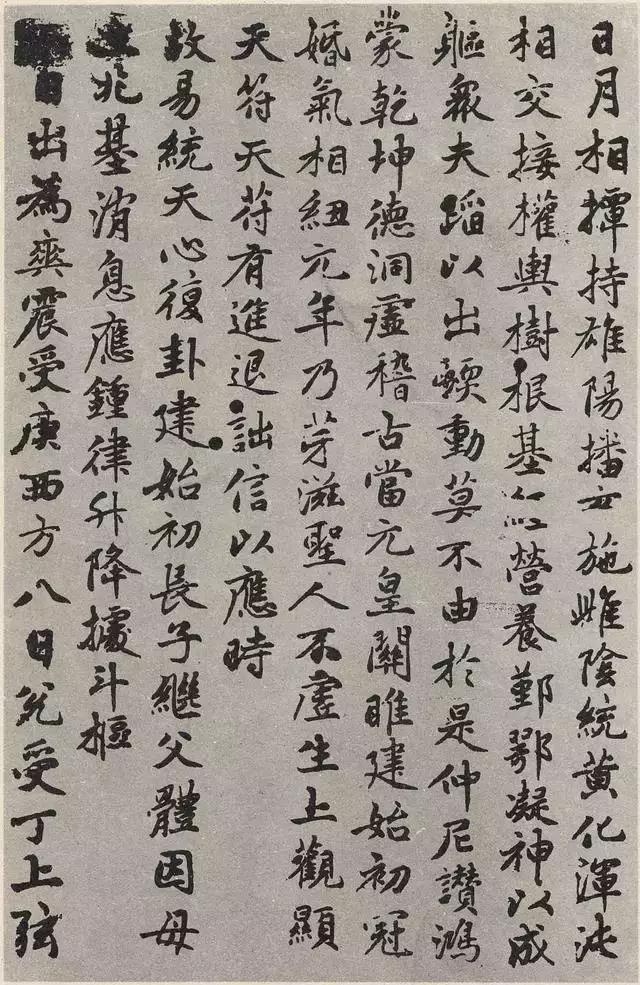 日月相撢持雄陽播玄施雌陰統黃化渾沌
相交接權輿樹根基以營養鄞鄂凝神以成
軀眾夫蹈以出蝡動莫不由於是仲尼讚鴻
蒙乾坤德洞虛稽古當元皇關雎建始初冠
婚氣相紐元年乃芽滋聖人不虛生上觀顯
天符天符有進退詘信以應時
故易統天心復卦建始初長子繼父體因母
兆基消息應鍾律升降據斗樞
日出為爽震受庚西方八日兌受丁上弦